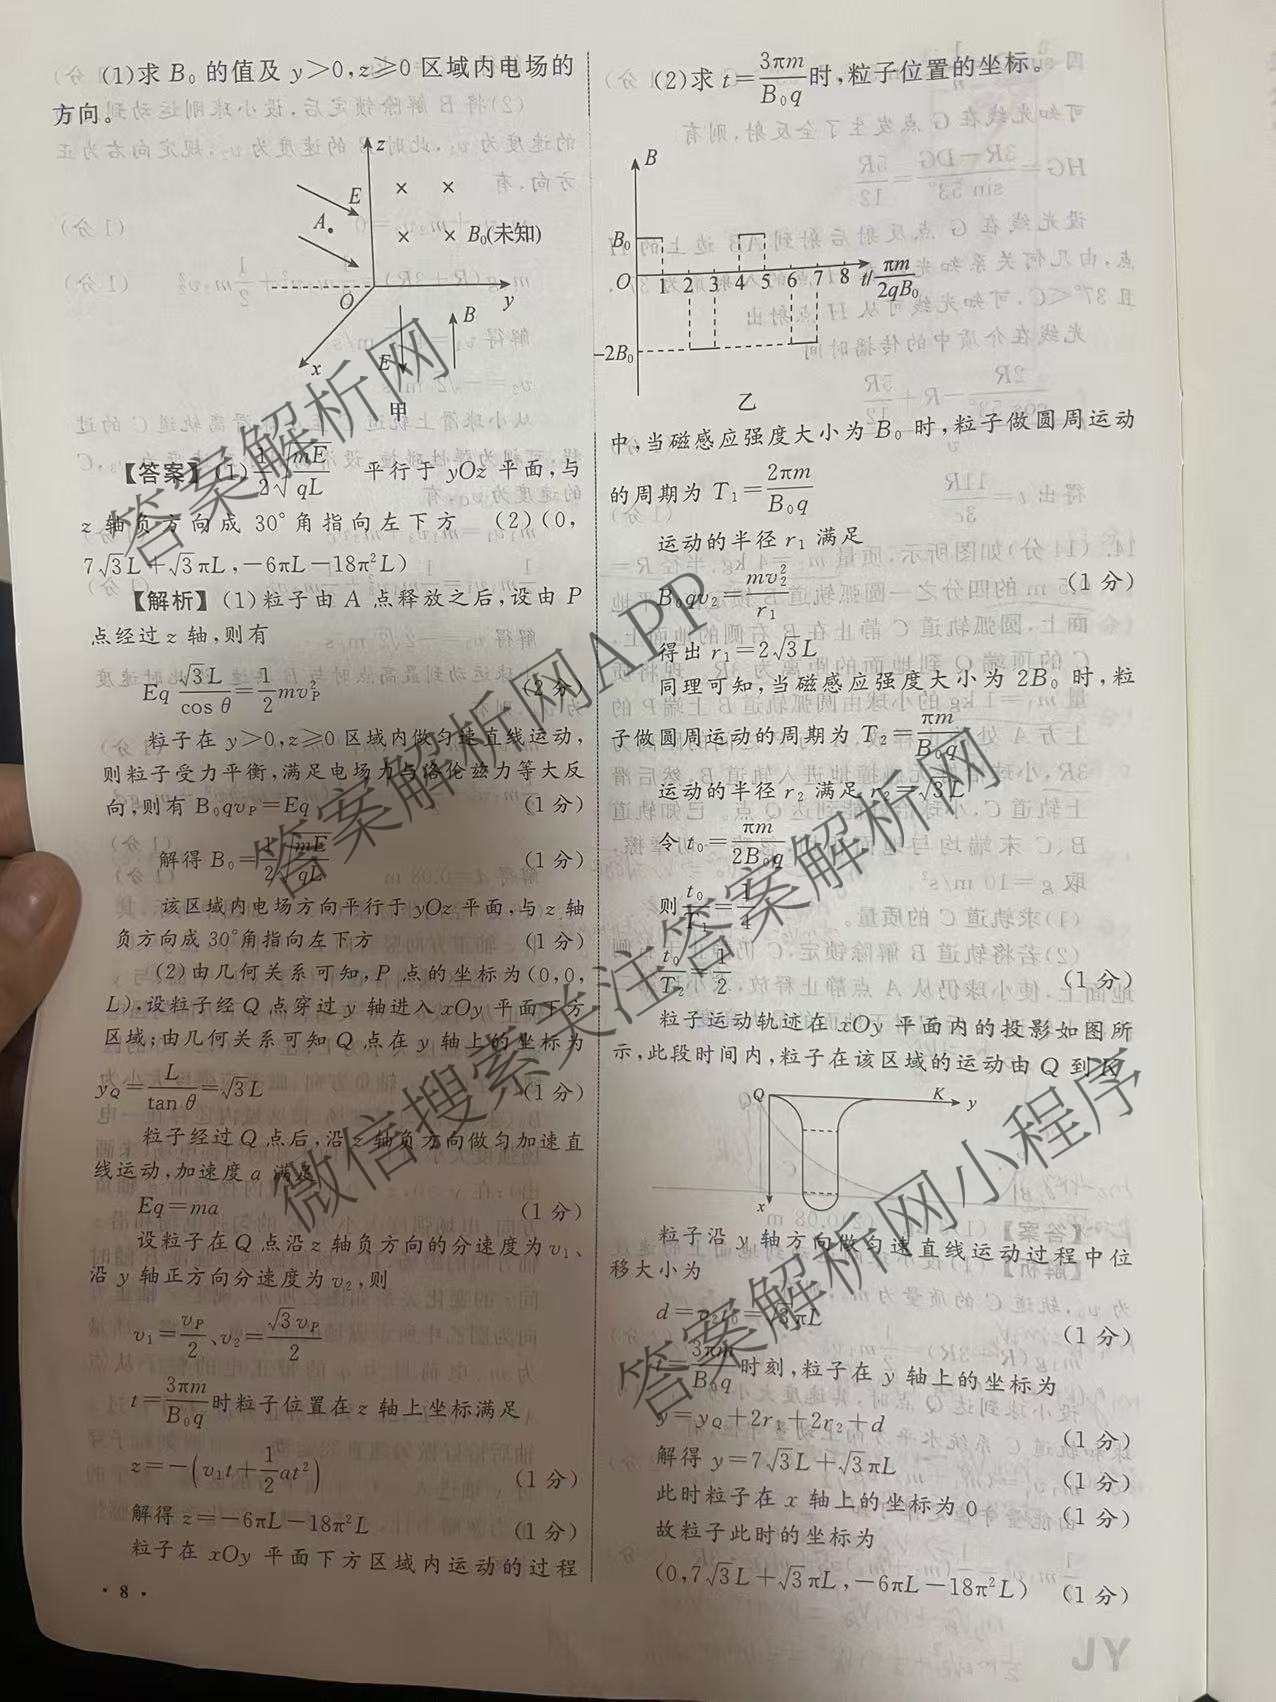 (1)求B₀的值及y>0,z≥0区域内电场的
方向。
z
E
A
B₀(未知)
O
y
B
x
E
甲
【答案】(1)1/2√(mE/qL) 平行于yOz平面,与
z轴负方向成30°角指向左下方 (2)(0,
7√3L+√3πL,-6πL-18π²L)
【解析】(1)粒子由A点释放之后,设由P
点经过z轴,则有
Eq √3L/cos θ=1/2mv²_P (2分)
粒子在y>0,z≥0区域内做匀速直线运动,
则粒子受力平衡,满足电场力与洛伦兹力等大反
向,则有B₀qv_P=Eq (1分)
解得B₀=1/2√(mE/qL) (1分)
该区域内电场方向平行于yOz平面,与z轴
负方向成30°角指向左下方 (1分)
(2)由几何关系可知,P点的坐标为(0,0,
L),设粒子经Q点穿过y轴进入xOy平面下方
区域;由几何关系可知Q点在y轴上的坐标为
y_Q=L/tan θ=√3L (1分)
粒子经过Q点后,沿z轴负方向做匀加速直
线运动,加速度a满足
Eq=ma (1分)
设粒子在Q点沿z轴负方向的分速度为v₁、
沿y轴正方向分速度为v₂,则
v₁=v_P/2、v₂=√3v_P/2
t=3πm/B₀q时粒子位置在z轴上坐标满足
z=-(v₁t+1/2at²) (1分)
解得z=-6πL-18π²L (1分)
粒子在xOy平面下方区域内运动的过程
· 8 ·
(2)求t=3πm/B₀q时,粒子位置的坐标。
B
B₀
O 1 2 3 4 5 6 7 8 t/πm/2qB₀
-2B₀
乙
中,当磁感应强度大小为B₀时,粒子做圆周运动
的周期为T₁=2πm/B₀q
运动的半径r₁满足
B₀qv₂=mv₂²/r₁ (1分)
得出r₁=2√3L
同理可知,当磁感应强度大小为2B₀时,粒
子做圆周运动的周期为T₂=πm/B₀q
运动的半径r₂满足r₂=√3L
令t₀=πm/2B₀q
则t₀/T₁=1/4
t₀/T₂=1/2 (1分)
粒子运动轨迹在xOy平面内的投影如图所
示,此段时间内,粒子在该区域的运动由Q到K
Q K y
x
粒子沿y轴方向做匀速直线运动过程中位
移大小为
d=v₂t₀=√3πL (1分)
t=3πm/B₀q时刻,粒子在y轴上的坐标为
y=y_Q+2r₁+2r₂+d (1分)
解得y=7√3L+√3πL (1分)
此时粒子在x轴上的坐标为0 (1分)
故粒子此时的坐标为
(0,7√3L+√3πL,-6πL-18π²L) (1分)
JY
答案解析网
答案解析网APP
微信搜索关注答案解析网
答案解析网小程序